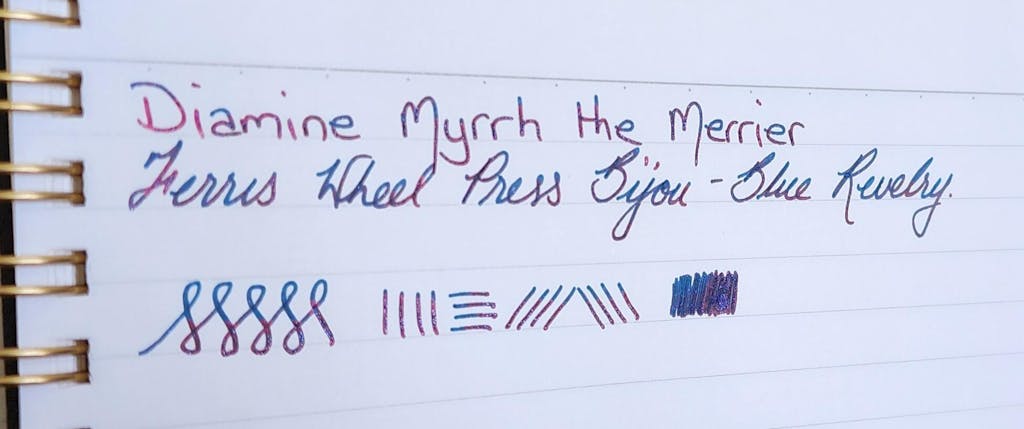 Diamine Myrrh the Merrier
Ferris Wheel Press Bijou - Blue Revelry.